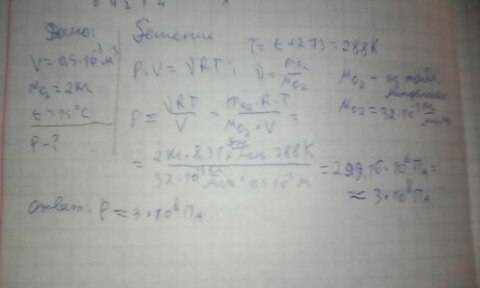 Дано:
V = 0,5·10⁻³ м³
m O₂ = 2кг
t = 15°C
P - ?
Решение
T = t + 273 = 288K
P·V = νRT; ν = m O₂ / M O₂
M O₂ - из табл.
M O₂ = 32·10⁻³ кг/моль
P = νRT / V = m O₂·R·T / M O₂·V =
= 2кг · 8,31 · 288K / 32·10⁻³ · 0,5·10⁻³ м = 299,16·10⁶ Па ≈
≈ 3·10⁸ Па
ответ: P ≈ 3·10⁸ Па